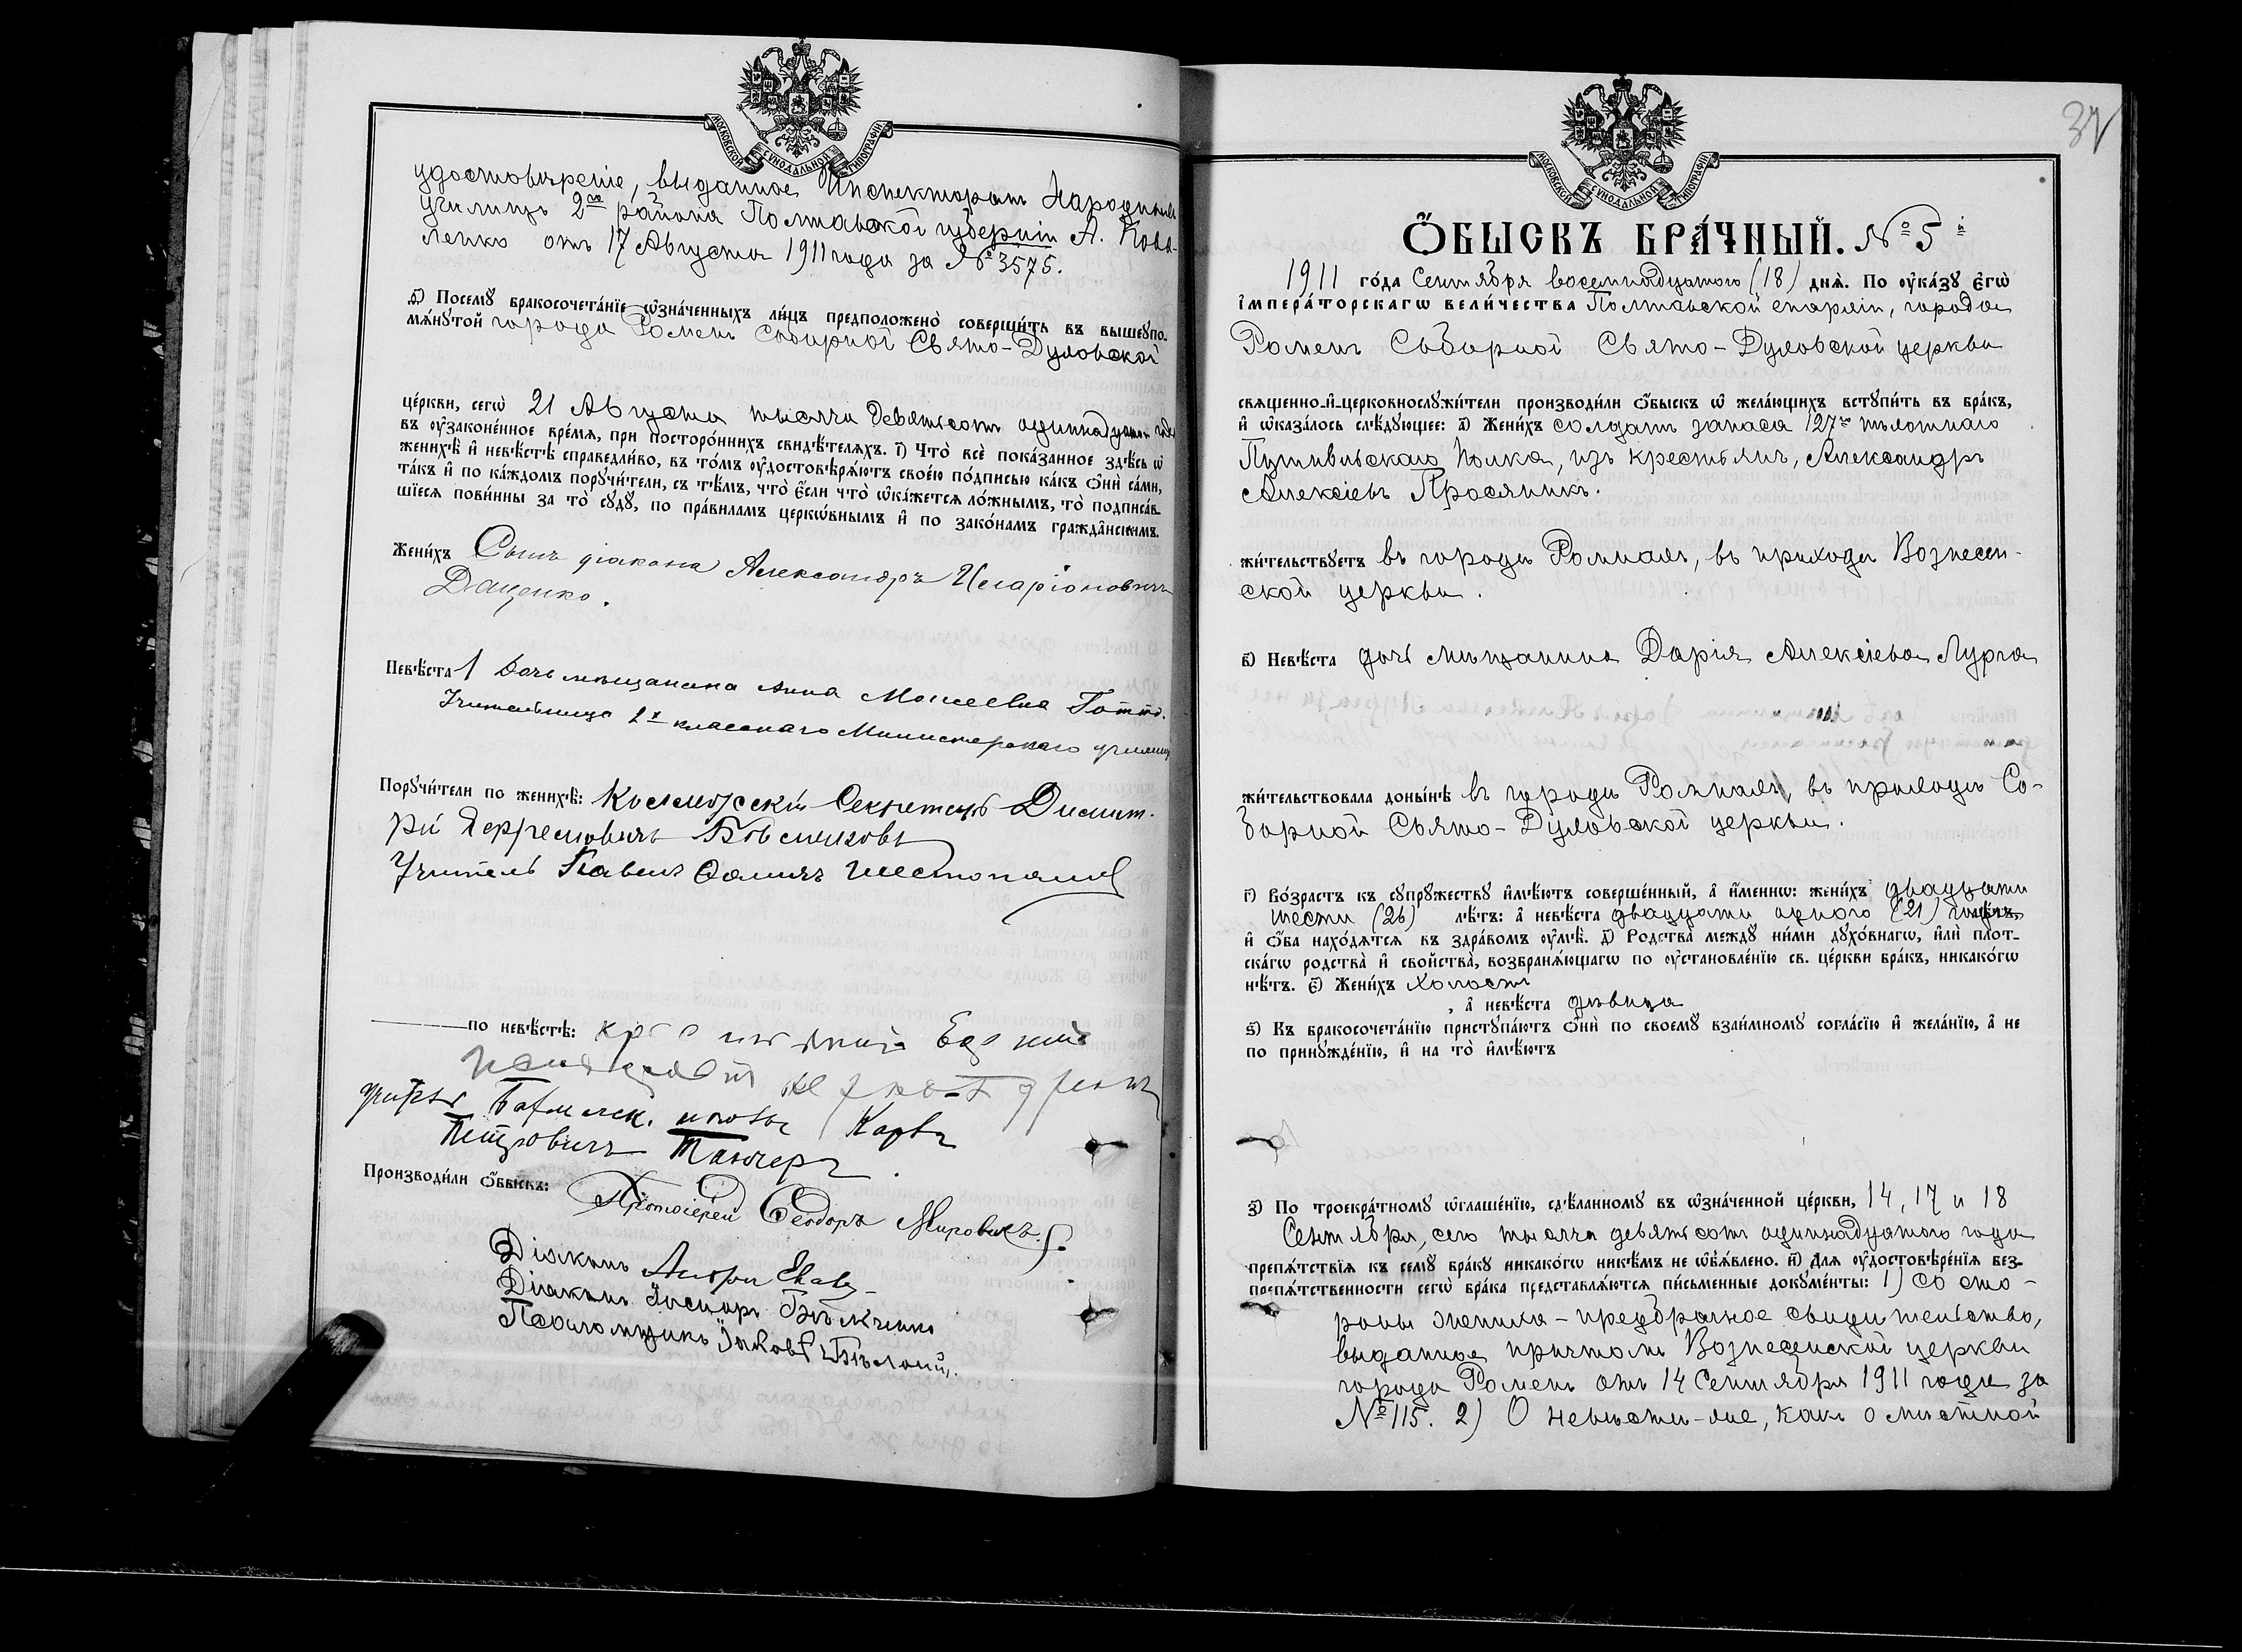 МОСКОВСКОЙ СѴНОДАЛЬНОЙ ТИПОГРАФІИ
удостовѣреніе, выданное Инспекторомъ Народныхъ
училищъ 2го района Полтавской губерніи А. Кова-
ленко отъ 17 Августа 1911 года за № 3575.
д҃і) Посемꙋ бракосочета́нїе ѡ҆зна́ченныхъ ли́цъ предположено̀ соверши́ть въ вышеꙋпо-
мѧ́нꙋтой города Роменъ Соборной Свято-Духовской
це́ркви, сегѡ̀ 21 Августа тысяча девятьсотъ одиннадцатаго года
въ ᲂу҆законе́нное вре́мѧ, при посторо́ннихъ свидѣ́телѧхъ. і҃) Что̀ всѐ пока́занное здѣ́сь ѡ҆
женихѣ̀ и҆ невѣ́стѣ справедли́во, въ то́мъ ᲂу҆достовѣрѧ́ютъ свое́ю по́дписью ка́къ ѻ҆нѝ са́ми,
та́къ и҆ по ка́ждомъ порꙋчи́тели, съ тѣ́мъ, что̀ є҆́сли что̀ ѡ҆ка́жетсѧ ло́жнымъ, то̀ подписа́в-
шїесѧ пови́нны за то̀ сꙋдꙋ̀, по пра́виламъ церко́внымъ и҆ по зако́намъ гражда́нскимъ.
Жени́хъ Сынъ діакона Александръ Иларіоновичъ
Даценко.
Невѣ́ста Дочь мѣщанина Анна Моисеевна
Учительница 2х класснаго Министерскаго училища
Порꙋчи́тели по женихѣ̀: Коллежскій Секретарь Димит-
рій Ефремовичъ
Учитель Павелъ Ѳомичъ Шестопалъ
по невѣ́стѣ:
Карпъ
Петровичъ
Производи́ли ѻ҆́быскъ: Протоіерей Ѳеодоръ Мировичъ.
Діаконъ Андрей
Діаконъ Іосифъ
Псаломщикъ Іаковъ
37
МОСКОВСКОЙ СѴНОДАЛЬНОЙ ТИПОГРАФІИ
Ѻ҆́БЫСКЪ БРА́ЧНЫЙ. № 5й
1911 го́да Сентября восемнадцатого (18) днѧ̀. По ᲂу҆ка́зꙋ є҆гѡ̀
і҆мпера́торскагѡ вели́чества Полтавской епархіи, города
Роменъ Соборной Свято-Духовской церкви
свѧщенно-и҆-церковнослꙋжи́тели производи́ли ѻ҆́быскъ ѡ҆ жела́ющихъ встꙋпи́ть въ бра́къ,
и҆ ѡ҆каза́лось слѣ́дꙋющее: а҃) Жени́хъ солдатъ запаса 127го пѣхотнаго
Путивльскаго полка, изъ крестьянъ, Александръ
Алексіевъ Просяникъ.
жи́тельствꙋетъ въ городѣ Ромнахъ, въ приходѣ Вознесен-
ской церкви.
в҃) Невѣ́ста дочь мѣщанина Дарія Алексіева Лурга
жи́тельствовала доны́нѣ въ городѣ Ромнахъ, въ приходѣ Со-
борной Свято-Духовской церкви.
г҃) Во́зрастъ къ сꙋпрꙋ́жествꙋ и҆мѣ́ютъ соверше́нный, а҆ и҆́менно: жени́хъ двадцати
шести (26) лѣ́тъ: а҆ невѣ́ста двадцати одного (21) года лѣ́тъ,
и҆ ѻ҆́ба нахо́дѧтсѧ въ здра́вомъ ᲂу҆мѣ̀. д҃) Родства̀ междꙋ ни́ми дꙋхо́внагѡ, и҆лѝ пло́т-
ска́гѡ родства̀ и҆ сво́йства, возбранѧ́ющагѡ по ᲂу҆становле́нїю св. це́ркви бра́къ, никако́гѡ
нѣ́тъ. є҃) Жени́хъ холостъ
, а҆ невѣ́ста дѣвица
ѕ҃) Къ бракосочета́нїю пристꙋпа́ютъ ѻ҆нѝ по своемꙋ̀ взаи́мномꙋ согла́сїю и҆ жела́нїю, а҆ не
по принꙋжде́нїю, и҆ на то̀ и҆мѣ́ютъ
з҃) По троекра́тномꙋ ѡ҆глаше́нїю, сдѣ́ланномꙋ въ ѡ҆зна́ченной це́ркви, 14, 17 и 18
Сентября, сего тысяча девятьсотъ одиннадцатого года
препѧ́тствїѧ къ семꙋ̀ бра́кꙋ никако́гѡ никѣ́мъ не ѡ҆б̾ѧ́влено. и҃) Для ᲂу҆достовѣ́ренїѧ без-
препѧ́тственности сегѡ̀ бра́ка представлѧ́ютсѧ пи́сьменные докꙋме́нты: 1) Со сто-
роны жениха - предбрачное свидѣтельство,
выданное причтомъ Вознесенской церкви
города Роменъ отъ 14 Сентября 1911 года за
№ 115. 2) О невѣстѣ-же, какъ о мѣстной